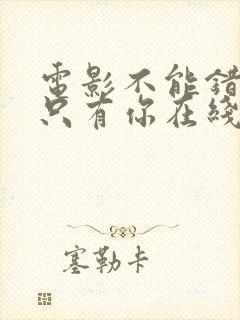 電影不能錯
只有你在綫
塞勒卡